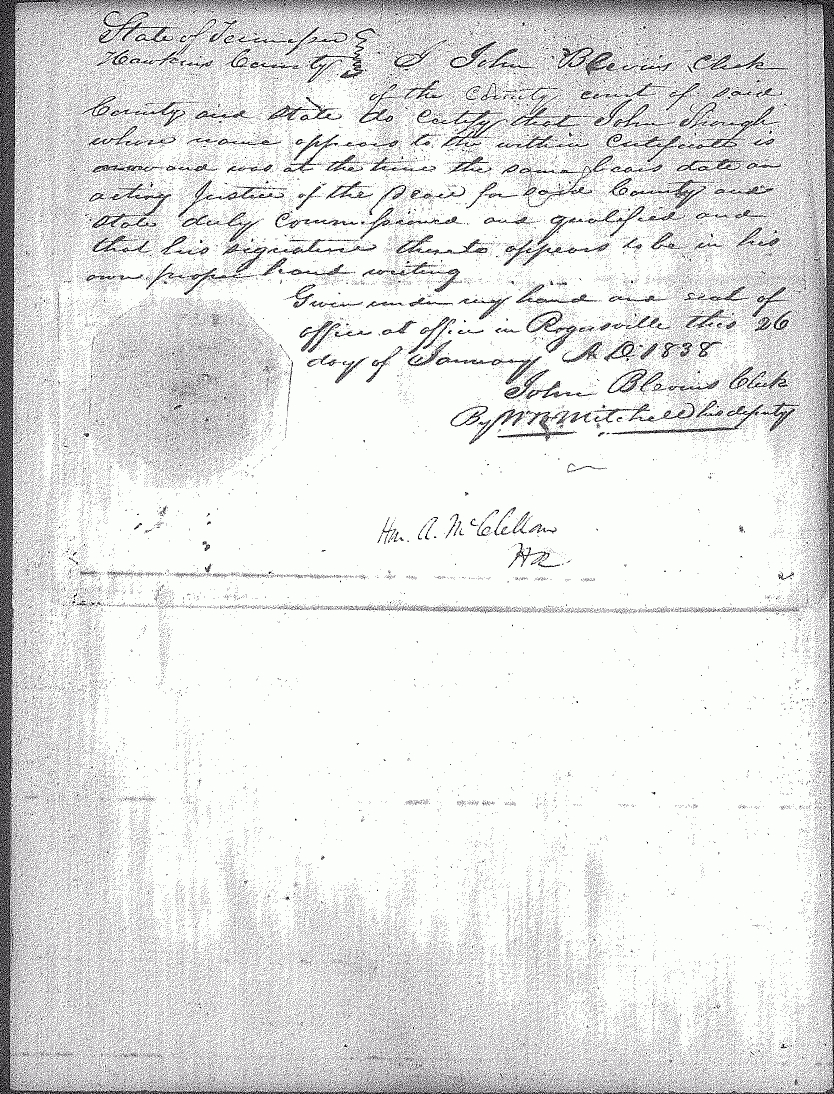 State of Tennessee
Hawkins County } I John Blevins Clerk
of the County court of said
County and State do Certify that John Shough
whose name appears to the within Certificate is
now and was at the time the same bears date an
acting Justice of the peace for said County and
State duly Commissioned and qualified and
that his signature thereto appears to be in his
own proper hand writing
Given under my hand and seal of
office at office in Rogersville this 26
day of January A.D. 1838
John Blevins Clerk
By Mitchell his deputy
Hon. A. McClellan
HR